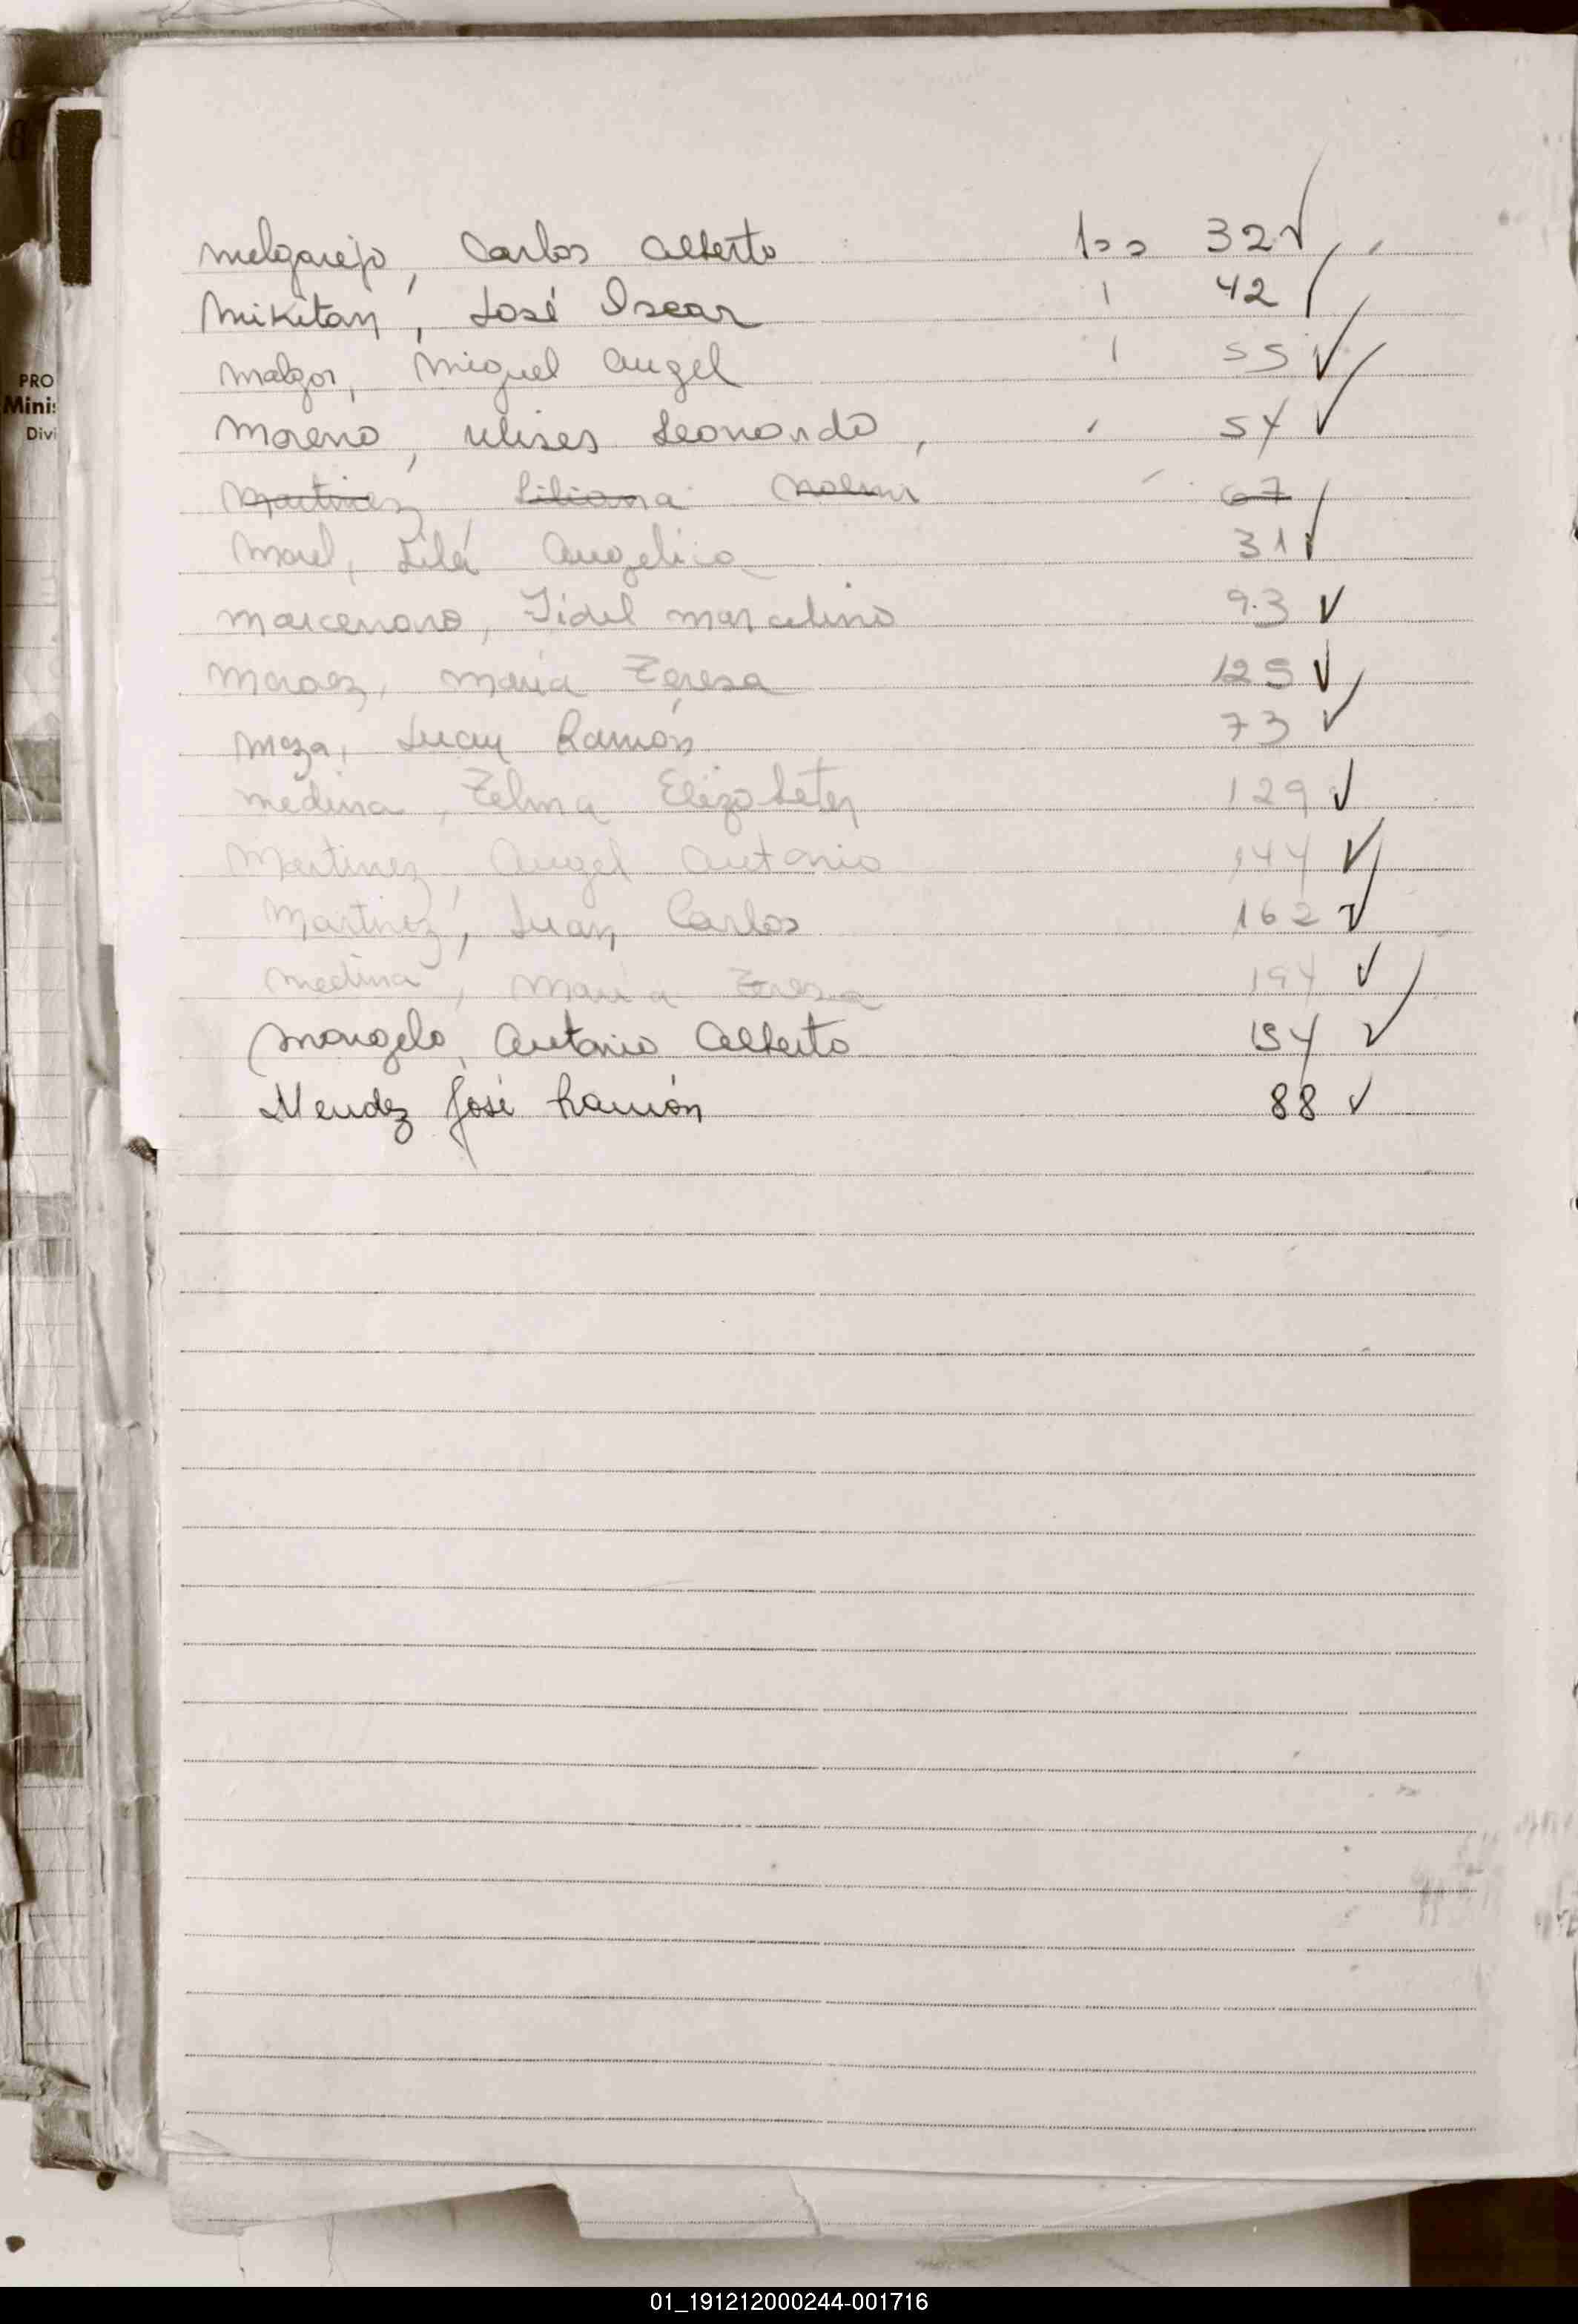 PRO
Minis
Divi
Melgarejo, Carlos Alberto 32 ✓
Mikitan, José Oscar 42
Malgor, Miguel Angel 55 ✓
Moreno, Ulises Leonardo, 54 ✓
Martinez, Liliana Noemi 67
Morel, Lila Angelica 31 ✓
Marcenaro, Fidel Marcelino 93 ✓
Maria Teresa 125 ✓
Meza, Juan Ramón 73 ✓
Medina, Zelma Elizabeter 129 ✓
Martinez, Angel Antonio 144 ✓
Martinez, Juan Carlos 162 ✓
Medina, Maria Teresa 194 ✓
Mongelo, Antonio Alberto 154 ✓
Mendez José Ramón 88 ✓
01_191212000244-001716